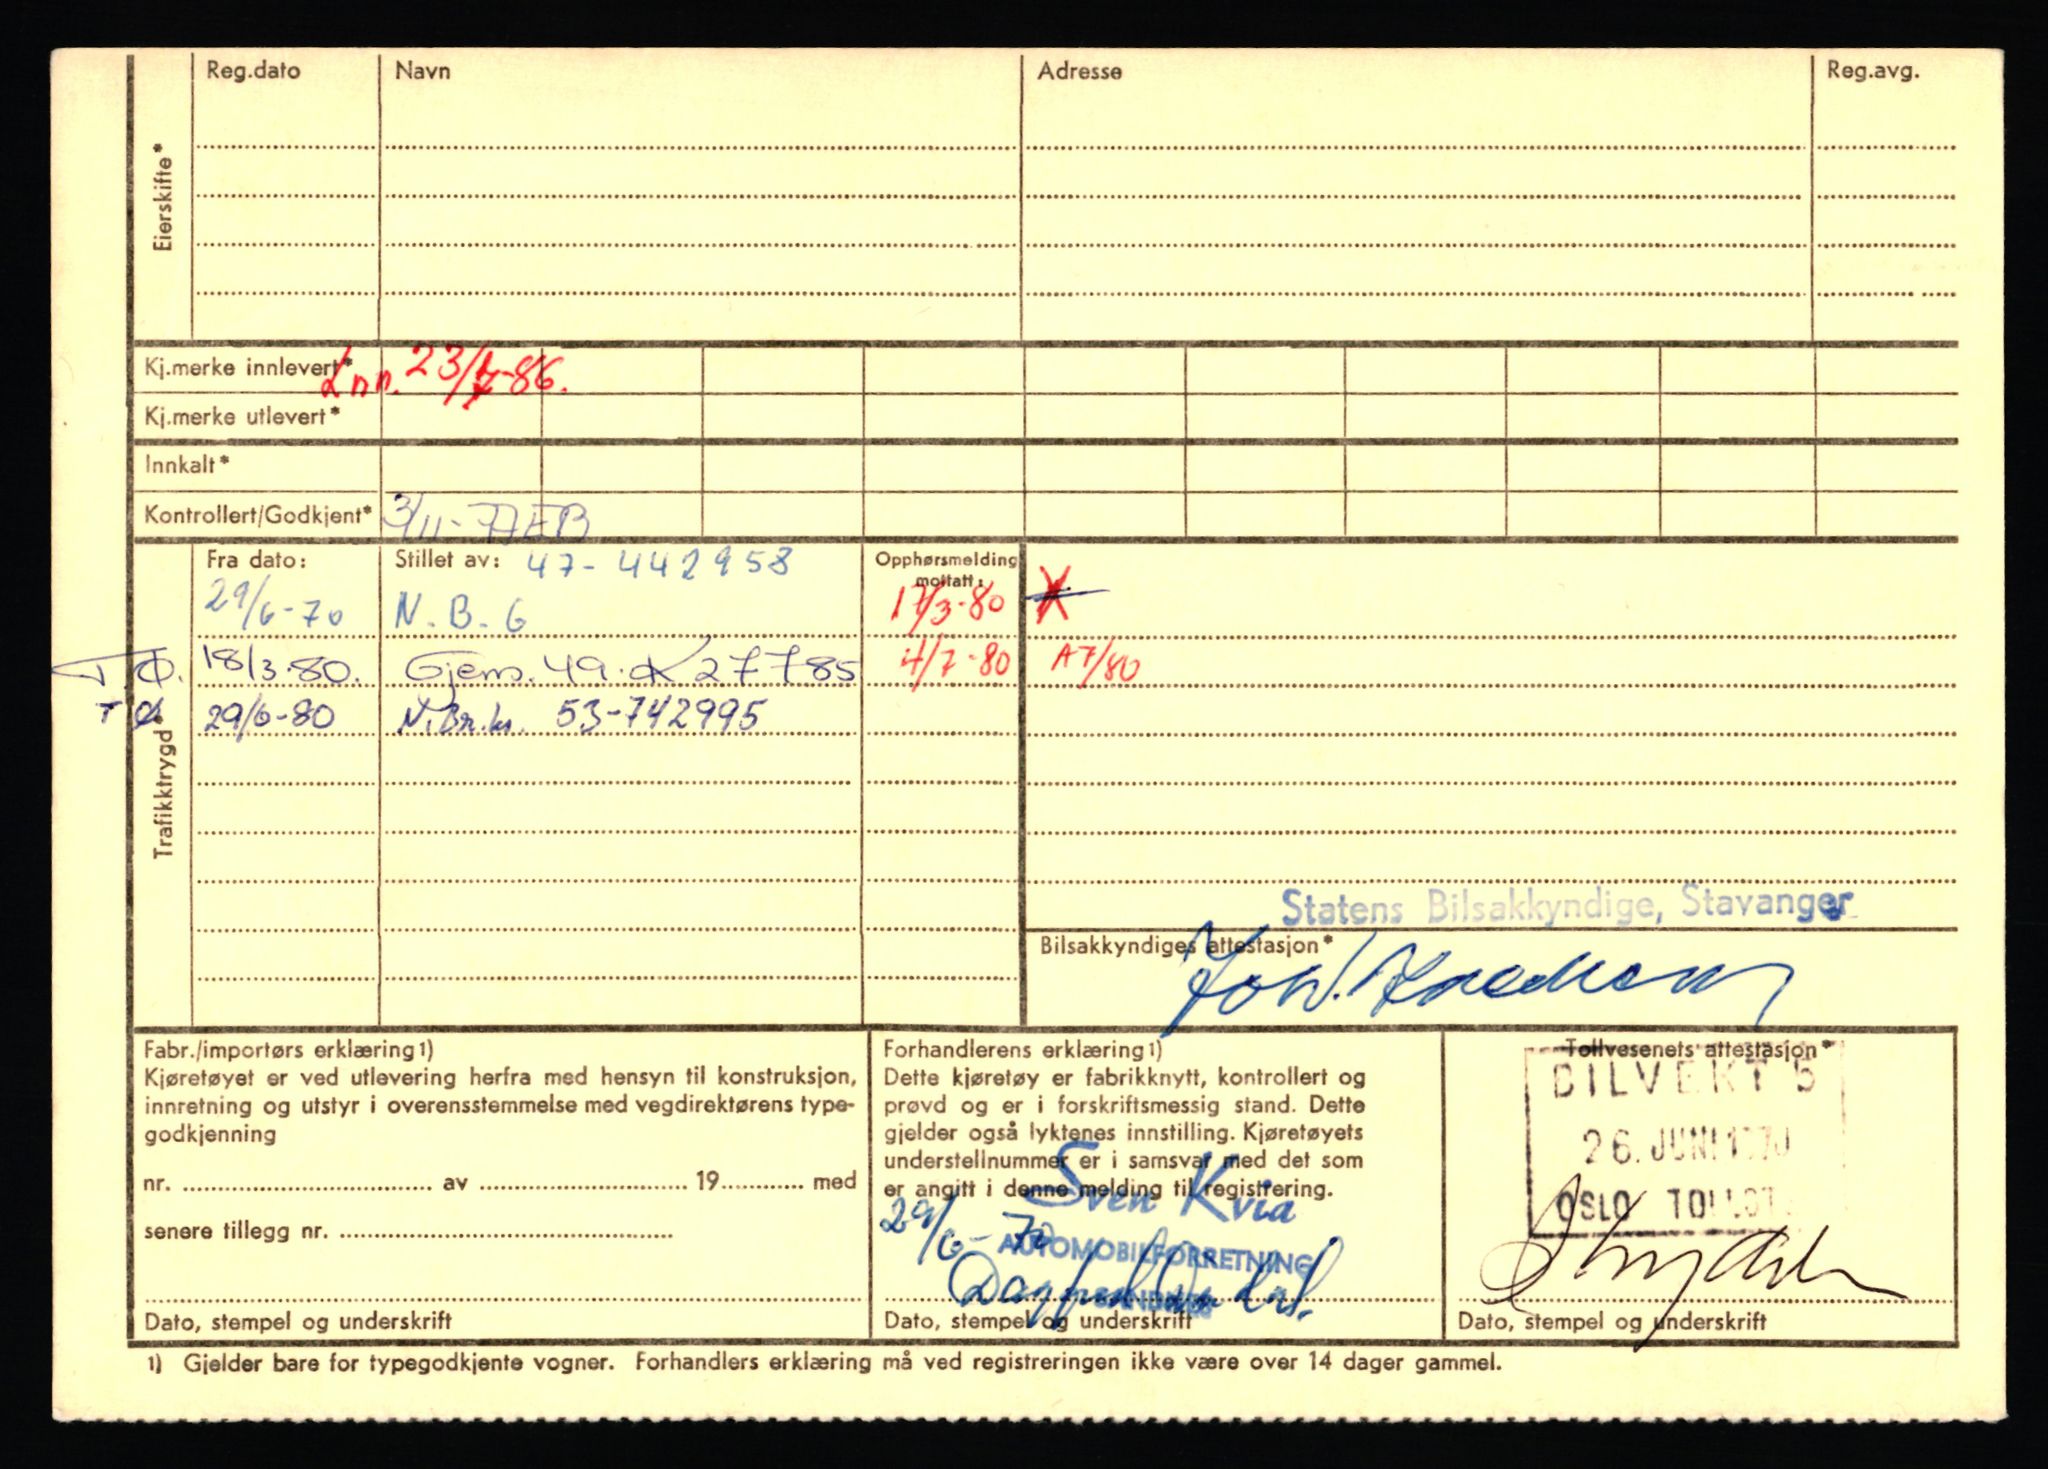 Reg.dato Navn Adresse Reg.avg.
Eierskifte*
Kj.merke innlevert* Inn. 23/7-86.
Kj.merke utlevert*
Innkalt*
Kontrollert/Godkjent* 3/11-77 EB
Trafikktrygd
Fra dato: Stillet av: 47-442958 Opphørsmelding mottatt:
29/6-70 N.B.G 17/3-80 X
TØ. 18/3-80. Gjens. 49.K27785 4/7-80 A7/80
TØ 29/6-80 N.Br.ks. 53-742995
Statens Bilsakkyndige, Stavanger
Bilsakkyndiges attestasjon*
Fabr./importørs erklæring1)
Kjøretøyet er ved utlevering herfra med hensyn til konstruksjon,
innretning og utstyr i overensstemmelse med vegdirektørens type-
godkjenning
nr. av 19 med
senere tillegg nr.
Dato, stempel og underskrift
Forhandlerens erklæring1)
Dette kjøretøy er fabrikknytt, kontrollert og
prøvd og er i forskriftsmessig stand. Dette
gjelder også lyktenes innstilling. Kjøretøyets
understellnummer er i samsvar med det som
er angitt i denne melding til registrering.
Sven Kvia
29/6-70
AUTOMOBILFORRETNING
SANDNES
Dato, stempel og underskrift
Tollvesenets attestasjon*
BILVEKT 5
26. JUNI 1970
OSLO TOLLST.
Dato, stempel og underskrift
1) Gjelder bare for typegodkjente vogner. Forhandlers erklæring må ved registreringen ikke være over 14 dager gammel.